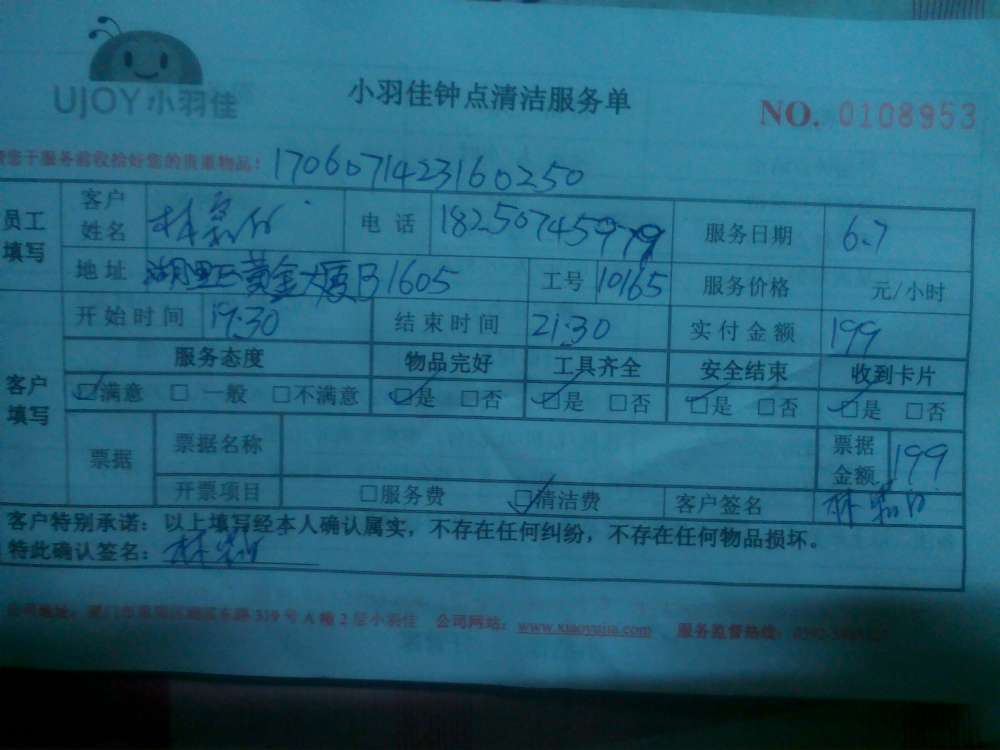 UJOY小羽佳
小羽佳钟点清洁服务单
NO. 0108953
您于服务前收拾好您的贵重物品：1706071423160250
员工填写 客户姓名 林 电话 18250745979 服务日期 6.7
地址 湖里区黄金大厦B1605 工号 10165 服务价格 元/小时
客户填写 开始时间 19:30 结束时间 21:30 实付金额 199
服务态度 物品完好 工具齐全 安全结束 收到卡片
☑满意 □一般 □不满意 ☑是 □否 ☑是 □否 ☑是 □否 ☑是 □否
票据 票据名称 票据金额 199
开票项目 □服务费 ☑清洁费 客户签名 林
客户特别承诺：以上填写经本人确认属实，不存在任何纠纷，不存在任何物品损坏。
特此确认签名：林
公司地址：厦门市 319号A幢2层小羽佳 公司网站：www.xiaoyujia.com 服务监督热线：